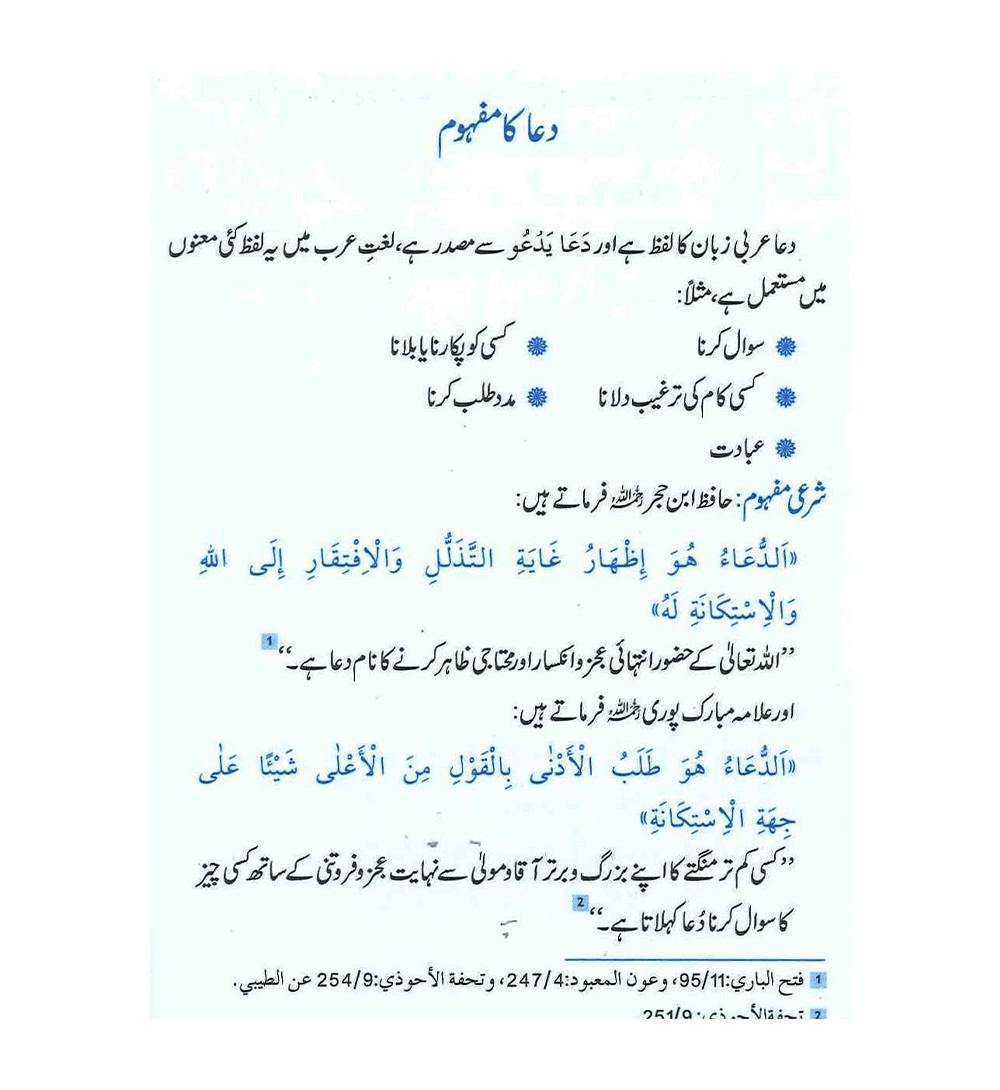 دعا کا مفہوم
دعا عربی زبان کا لفظ ہے اور دَعَا یَدْعُو سے مصدر ہے، لغتِ عرب میں یہ لفظ کئی معنوں
میں مستعمل ہے، مثلاً:
سوال کرنا کسی کو پکارنا یا بلانا
کسی کام کی ترغیب دلانا مدد طلب کرنا
عبادت
شرعی مفہوم: حافظ ابن حجر رحمہ اللہ فرماتے ہیں:
«اَلدُّعَاءُ هُوَ إِظْهَارُ غَايَةِ التَّذَلُّلِ وَالْاِفْتِقَارِ إِلَى اللهِ
وَالْاِسْتِكَانَةِ لَهُ»
’’اللہ تعالیٰ کے حضور انتہائی عجز و انکسار اور محتاجی ظاہر کرنے کا نام دعا ہے۔‘‘ 1
اور علامہ مبارک پوری رحمہ اللہ فرماتے ہیں:
«اَلدُّعَاءُ هُوَ طَلَبُ الْأَدْنٰى بِالْقَوْلِ مِنَ الْأَعْلٰى شَيْئًا عَلٰى
جِهَةِ الْاِسْتِكَانَةِ»
’’کسی کم تر منگتے کا اپنے بزرگ و برتر آقا و مولیٰ سے نہایت عجز و فروتنی کے ساتھ کسی چیز
کا سوال کرنا دُعا کہلاتا ہے۔‘‘ 2
1 فتح الباري:95/11، وعون المعبود:247/4، وتحفة الأحوذي:254/9 عن الطيبي.
2 تحفةالأحوذي:251/9